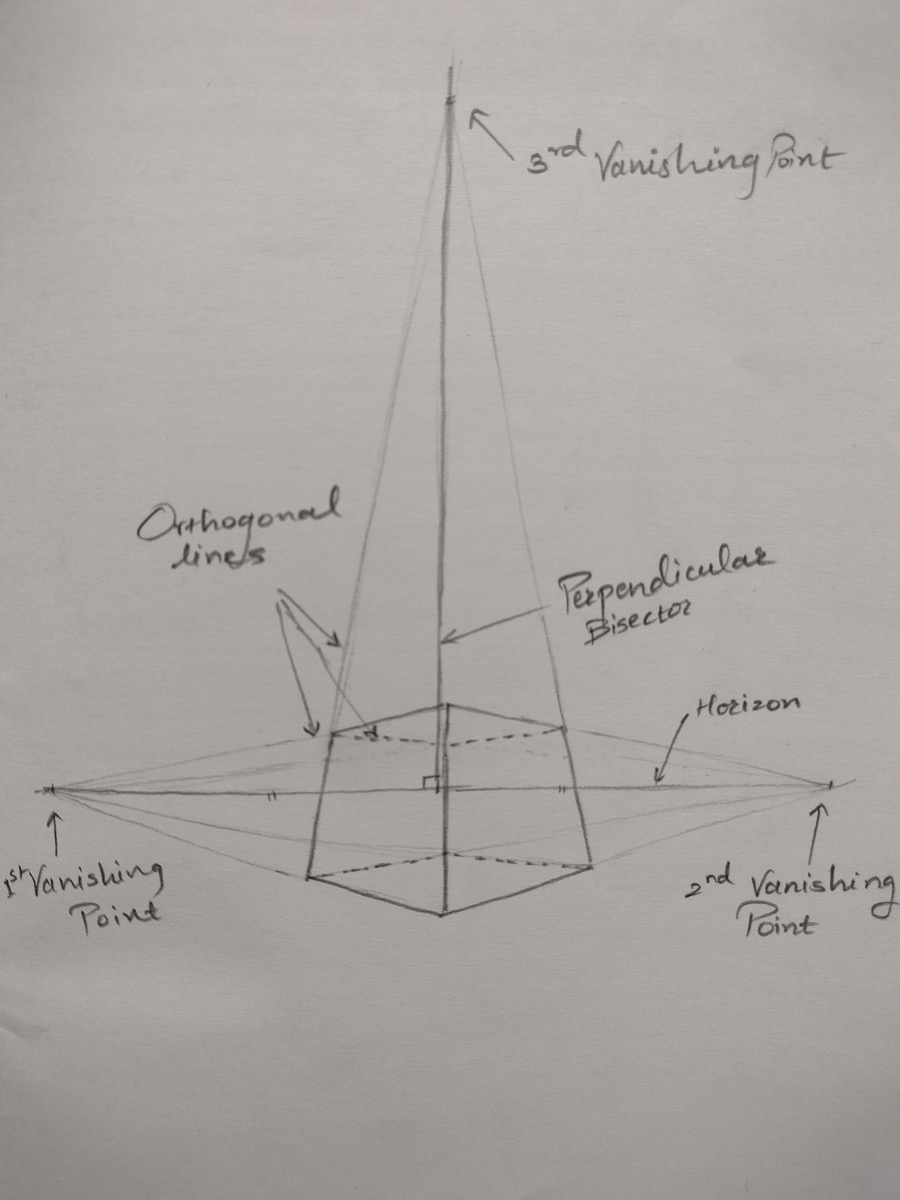 3rd Vanishing Point
Orthogonal
lines
Perpendicular
Bisector
Horizon
1st Vanishing
Point
2nd Vanishing
Point